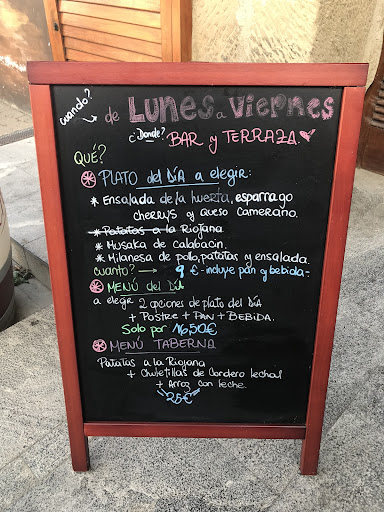 cuando? → de LUNES a VIERNES
¿Donde? BAR y TERRAZA.
QUÉ?
PLATO del DÍA a elegir:
* Ensalada de la huerta, esparrago
cherrys y queso camerano.
* Patatas a la Riojana
* Musaka de calabacin.
* Milanesa de pollo, patatas y ensalada.
cuanto? → 9 € - incluye pan y bebida -
MENÚ del DÍA
a elegir 2 opciones de plato del DÍA
+ POSTRE + PAN + BEBIDA.
Solo por 16,50€
MENÚ TABERNA
Patatas a la Riojana
+ Chuletillas de Cordero lechal
+ Arroz con leche.
25€